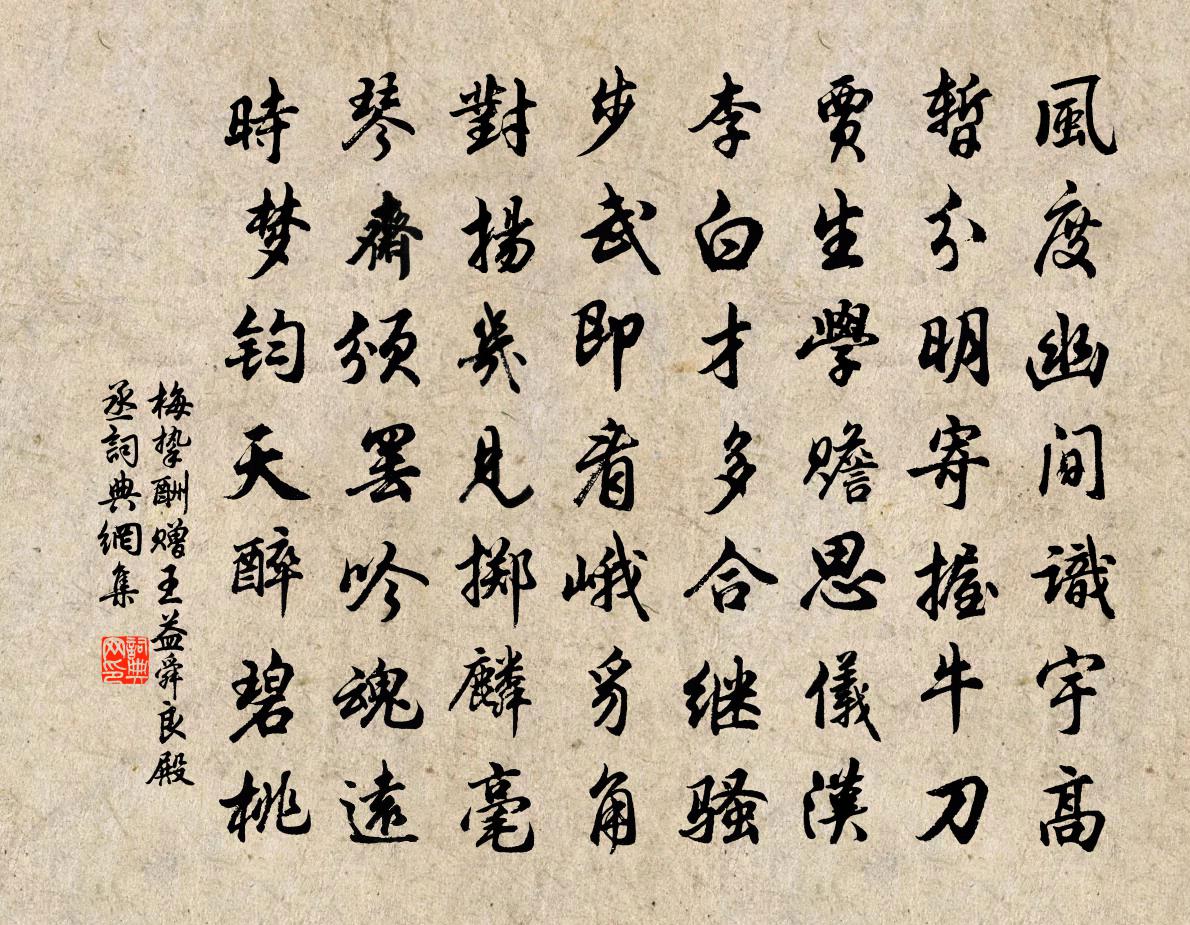 風度幽間識宇高
暫分明寄握牛刀
賈生學贍思儀漢
李白才多合继騷
步武即看峨豸角
對揚幾見擲麟毫
琴齋頒罢吟魂遠
時梦钧天醉碧桃
梅挚酬赠王益舜良殿
丞詞典網集
詞典
网印